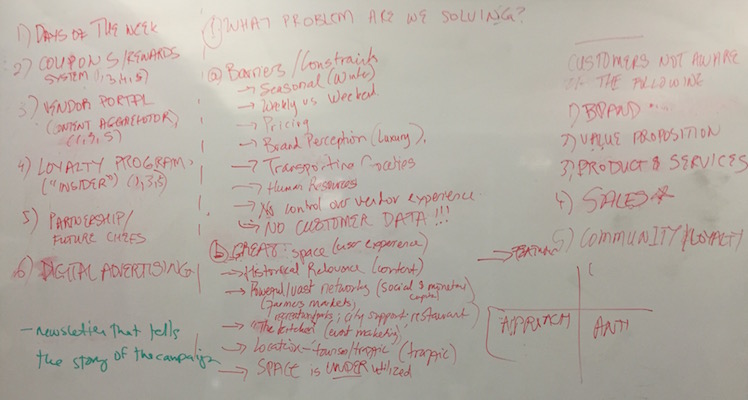 1) DAYS OF THE WEEK
2) COUPONS/REWARDS
SYSTEM (1,3,4,5)
3) VENDOR PORTAL
(CONTENT AGGREGATOR)
(1,3,5)
4) LOYALTY PROGRAM
("INSIDER") (1,3,5)
5) PARTNERSHIP/
FUTURE CHEFS
6) DIGITAL ADVERTISING
- newsletter that tells
the story of the campaign
① WHAT PROBLEM ARE WE SOLVING?
ⓐ Barriers/Constraints
→ Seasonal (Winter)
→ Weekly vs Weekend
→ Pricing
→ Brand Perception (Luxury)
→ Human Resources
→ No control over vendor experience
→ NO CUSTOMER DATA !!!
ⓑ GREAT space (user experience)
→ Historical Relevance (content)
→ Powerful/vast networks (social & monetary
capital)
(farmers markets,
city support; restaurant)
→ "The kitchen" (event marketing)
→ Location - tourism/traffic (traffic)
→ SPACE is UNDER utilized
CUSTOMERS NOT AWARE
OF THE FOLLOWING
1) BRAND
2) VALUE PROPOSITION
3) PRODUCT & SERVICES
4) SALES
5) COMMUNITY/LOYALTY